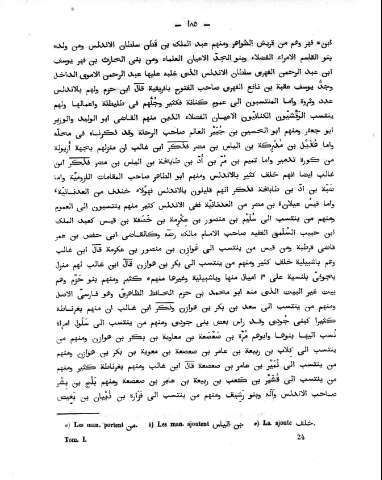 — ١٨٥ —
ابن" فهر وهم من قريش الظواهر ومنهم عبد الملك بن قطن سلطان الاندلس ومن ولده
القاسم الامراء الفضلاء وبنو الجد الاعيان العلماء ومن بنى الحارث بن فهر يوسف
ابن عبد الرحمن الفهرى سلطان الاندلس الذى غلبه عليها عبد الرحمن الاموى الداخل
وجدّ يوسف عقبة بن نافع الفهرى صاحب الفتوح بافريقية قال ابن حزم ولهم بالاندلس
عدد وثروة واما المنتسبون الى عموم كنانة فكثير وجُلّهم فى طليطلة واعمالها ولهم
ينتسب الوَقَّشيّون الكنانيّون الاعيان الفضلاء الذين منهم القاضى ابو الوليد والوزير
ابو جعفر ومنهم ابو الحسين بن جُبَيْر العالم صاحب الرحلة وقد ذكرناه فى محلّه
واما هُذَيْل بن مُدْرِكة بن الياس بن مضر فذكر ابن غالب ان منزلهم بجهة أريولة
من كورة تدمير واما تميم بن مُرّ بن أُدّ بن طابخة بن الياس بن مضر فذكر ابن
غالب ايضا انهم خلف كثير بالاندلس ومنهم ابو الطاهر صاحب المقامات اللزوميّة واما
ضَبّة بن أدّ بن طابخة فذكر انهم قليلون بالاندلس فهؤلاء خندف من العدنانيّة؛
واما قيس عيلان بن مضر من العدنانيّة ففى الاندلس كثير منهم ينتسبون الى العموم
ومنهم من ينتسب الى سُلَيْم بن منصور بن عِكْرِمة بن خَصَفة بن قيس كعبد الملك
ابن حبيب السُّلَمى الفقيه صاحب الامام مالك رضّه وكالقاضى ابى حفص بن عمر
قاضى قرطبة ومن قيس من ينتسب الى هوازن بن منصور بن عكرمة قال ابن غالب
وهم باشبيلية خلف كثير ومنهم من ينتسب الى بكر بن هوازن قال ابن غالب لهم منزل
بجوفى بلنسية على ٣ اميال منها وباشبيلية وغيرها منهم؛ كثير ومنهم بنو حزم وهم
بيت غير البيت الذى منه ابو محمد بن حزم الحافظ الظاهرى وهو فارسىّ الاصل
ومنهم من ينتسب الى سعد بن بكر بن هوازن وذكر ابن غالب ان منهم بغرناطة
كثيرا كبنى جُودى وقد راس بعض بنى جودى ومنهم من ينتسب الى سَلُول امراة
نسب اليها بنوها وابوهم مُرّة بن صَعْصَعة بن معاوية بن بكر بن هوازن ومنهم من
ينتسب الى كلاب بن ربيعة بن عامر بن صعصعة بن معوية بن بكر بن هوازن ومنهم
من ينتسب الى نُمَيْر بن عامر بن صعصعة قال ابن غالب وهم بغرناطة كثير ومنهم
من ينتسب الى قُشَيْر بن كعب بن ربيعة بن عامر بن صعصعة ومنهم بَلْج بن بشر
صاحب الاندلس وآله وبنو رَشيق ومنهم من ينتسب الى فزارة بن ذُبيان بن بَغيض
a) Les man. portent من. b) Les man. ajoutent بن الياس. c) La. ajoute خلف.
Tom. I. 24